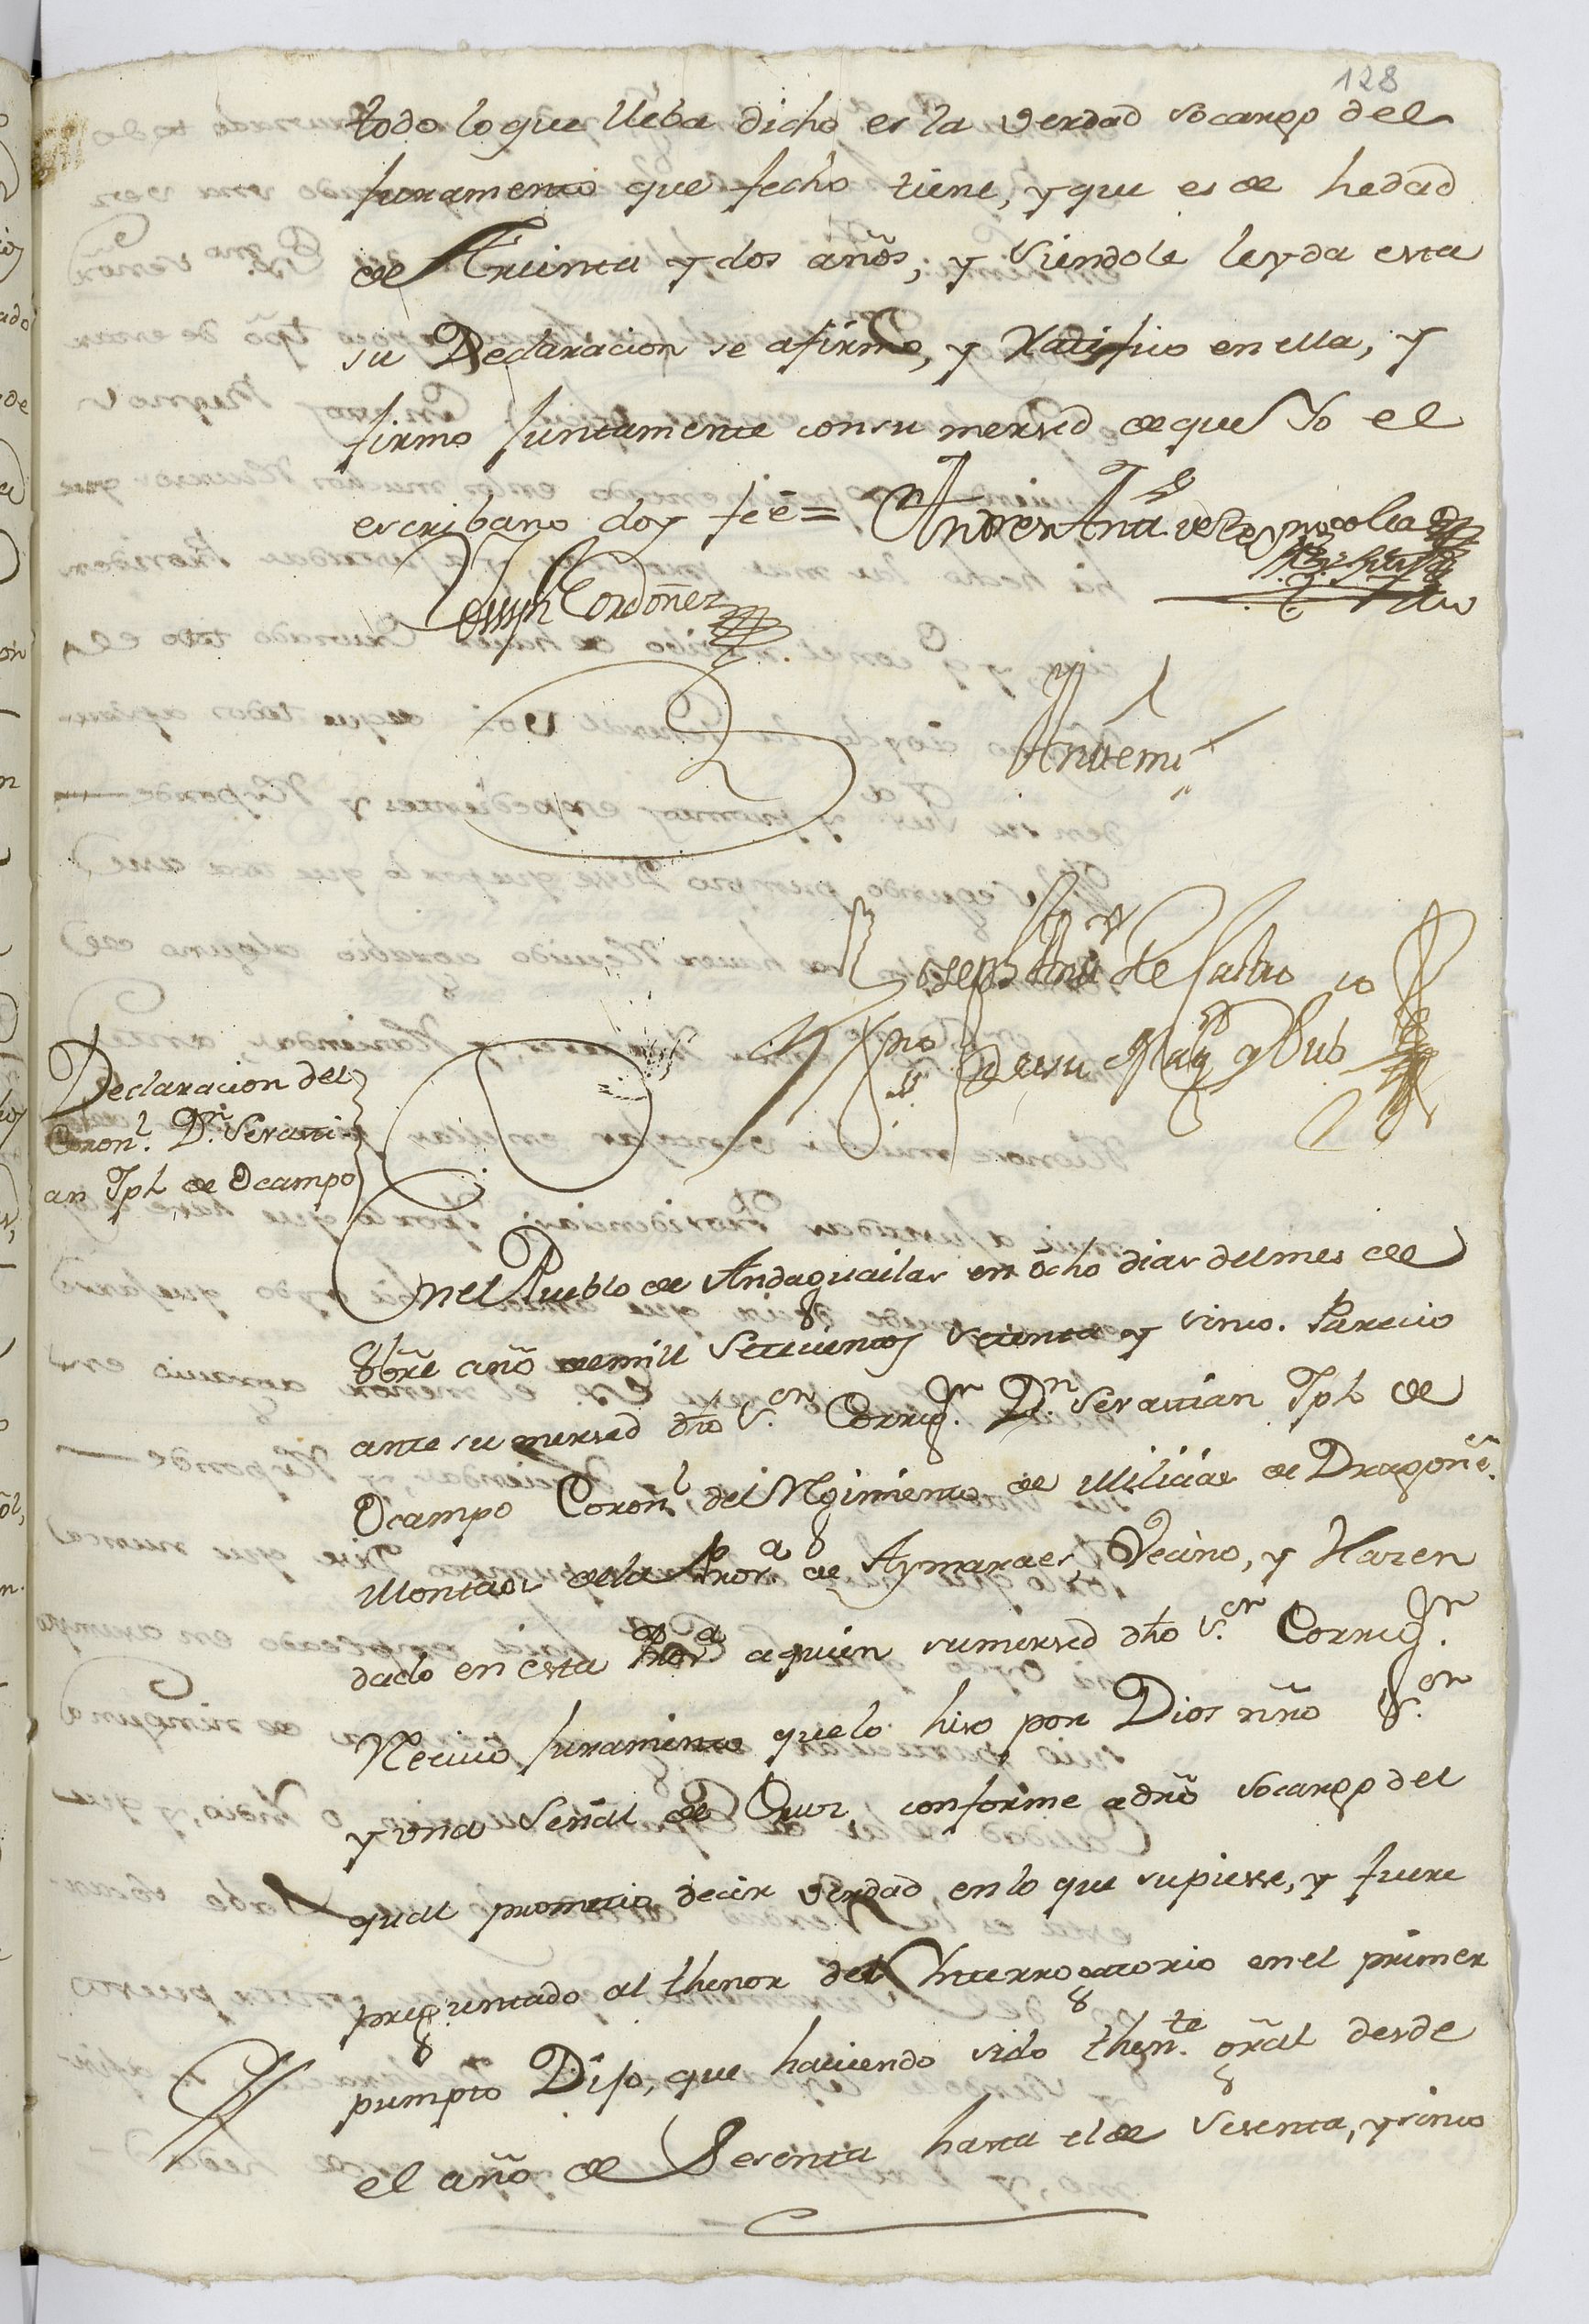 128
todo lo que lleba dicho es la verdad socargo del
juramento que fecho tiene, y que es de hedad
de Truinta y dos años, y Siendole leyda esta
su Declaracion se afirmo, y Ratifico en ella, y
firmo juntamente con su mersed de que Yo el
escribano doy feé =
Joseph Cordoñez
Antemi
Joseph Ant.º de Castro
Declaracion del
Coron.l D.n Serasti-
an Jph de Ocampo
En el Pueblo de Andaguailas en ocho dias del mes de
8bre año de mill Setecientos setenta y sinco. Parecio
ante su mersed dho S.or Correg.or D.n Serastian Jph de
Ocampo Coron.l del Regimiento de Milicias de Dragon.es
Montados de la Prov.a de Aymaraes, Vecino, y Hazen
dado en esta Prov.a a quien su mersed dho S.or Correg.or
Recivio juramento que lo hiso por Dios nro S.or
y una Señal de Cruz, conforme a dro socargo del
qual prometio decir verdad en lo que supiese, y fuere
preguntado al thenor del Ynterrogatorio en el primer
pumpto Dijo, que haviendo sido then.te gral desde
el año de Sesenta hasta el de Sesenta, y sinco